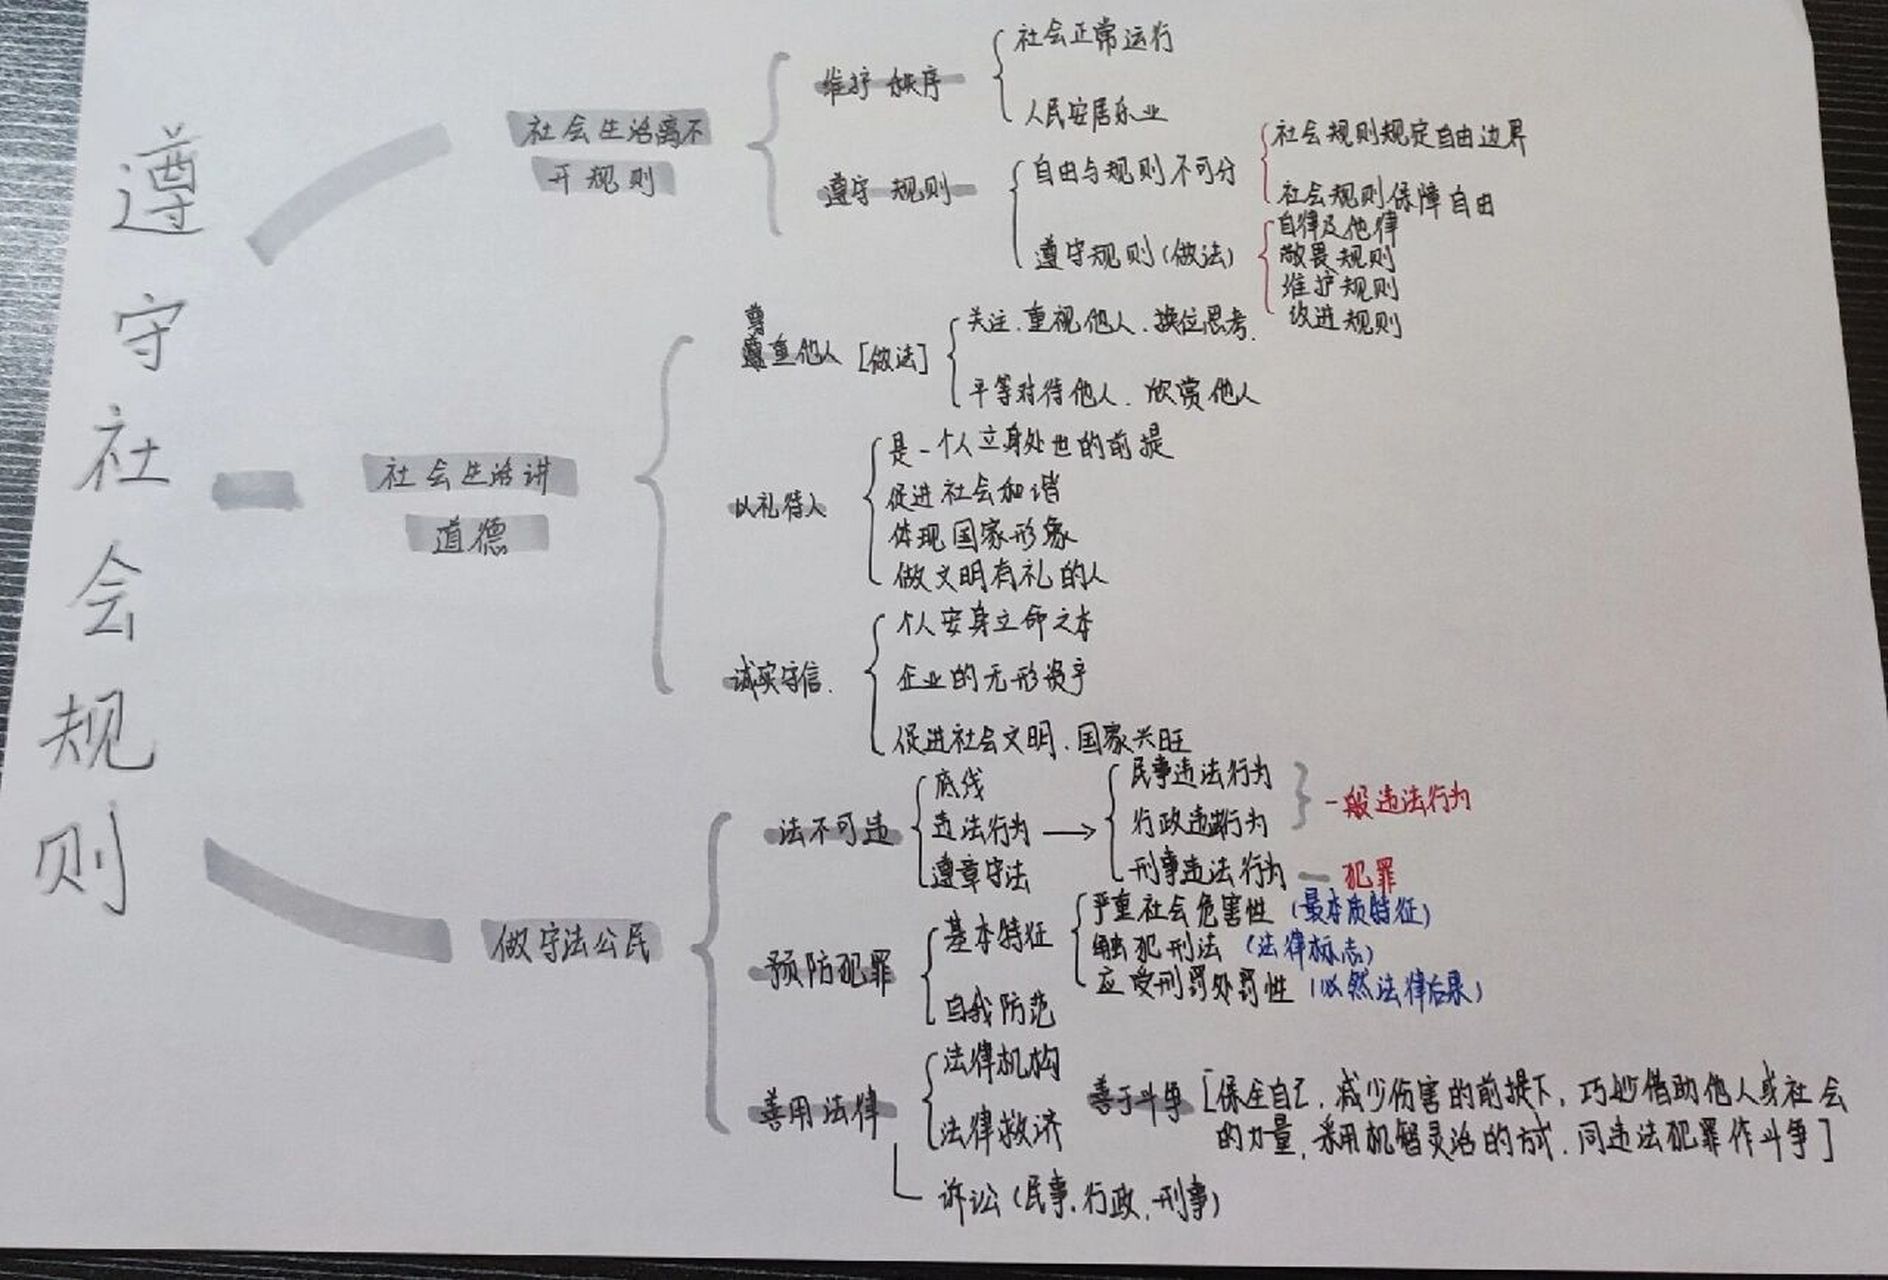 遵守社会规则
社会生活离不
开规则
维护秩序
社会正常运行
人民安居乐业
遵守规则
自由与规则不可分
社会规则规定自由边界
社会规则保障自由
遵守规则(做法)
自律及他律
敬畏规则
维护规则
改进规则
社会生活讲
道德
尊
重他人 [做法]
关注、重视他人、换位思考.
平等对待他人、欣赏他人
以礼待人
是一个人立身处世的前提
促进社会和谐
体现国家形象
做文明有礼的人
诚实守信.
个人安身立命之本
企业的无形资产
促进社会文明、国家兴旺
做守法公民
法不可违
底线
违法行为 →
遵章守法
民事违法行为
行政违法行为
一般违法行为
刑事违法行为 — 犯罪
预防犯罪
基本特征
严重社会危害性 (最本质特征)
触犯刑法 (法律标志)
应受刑罚处罚性 (必然法律后果)
自我防范
善用法律
法律机构
法律救济
诉讼(民事、行政、刑事)
善于斗争 [保全自己、减少伤害的前提下,巧妙借助他人或社会
的力量,采用机智灵活的方式、同违法犯罪作斗争]